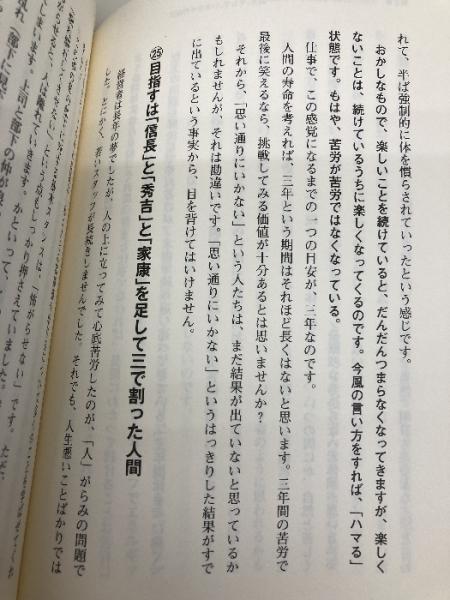 れて、半ば強制的に体を慣らされていったという感じです。
おかしなもので、楽しいことを続けていると、だんだんつまらなくなってきますが、楽しく
ないことは、続けているうちに楽しくなってくるのです。今風の言い方をすれば、「ハマる」
状態です。もはや、苦労が苦労ではなくなっている。
仕事で、この感覚になるまでの一つの目安が、三年なのです。
人間の寿命を考えれば、三年という期間はそれほど長くはないと思います。三年間の苦労で
最後に笑えるなら、挑戦してみる価値が十分あるとは思いませんか?
それから、「思い通りにいかない」という人たちは、まだ結果が出ていないと思っているか
もしれませんが、それは勘違いです。「思い通りにいかない」というはっきりした結果がすで
に出ているという事実から、目を背けてはいけません。
㉕目指すは「信長」と「秀吉」と「家康」を足して三で割った人間
経営者は長年の夢でしたが、人の上に立ってみて心底苦労したのが、「人」がらみの問題で
した。とにかく、若いスタッフが長続きしませんでした。それでも、人生悪いことばかりでは
スタンスは、「怖がらせない」です。
という点もしっかり押さえていました。
しまいます。上司と部下の仲が
いきます。かといって、